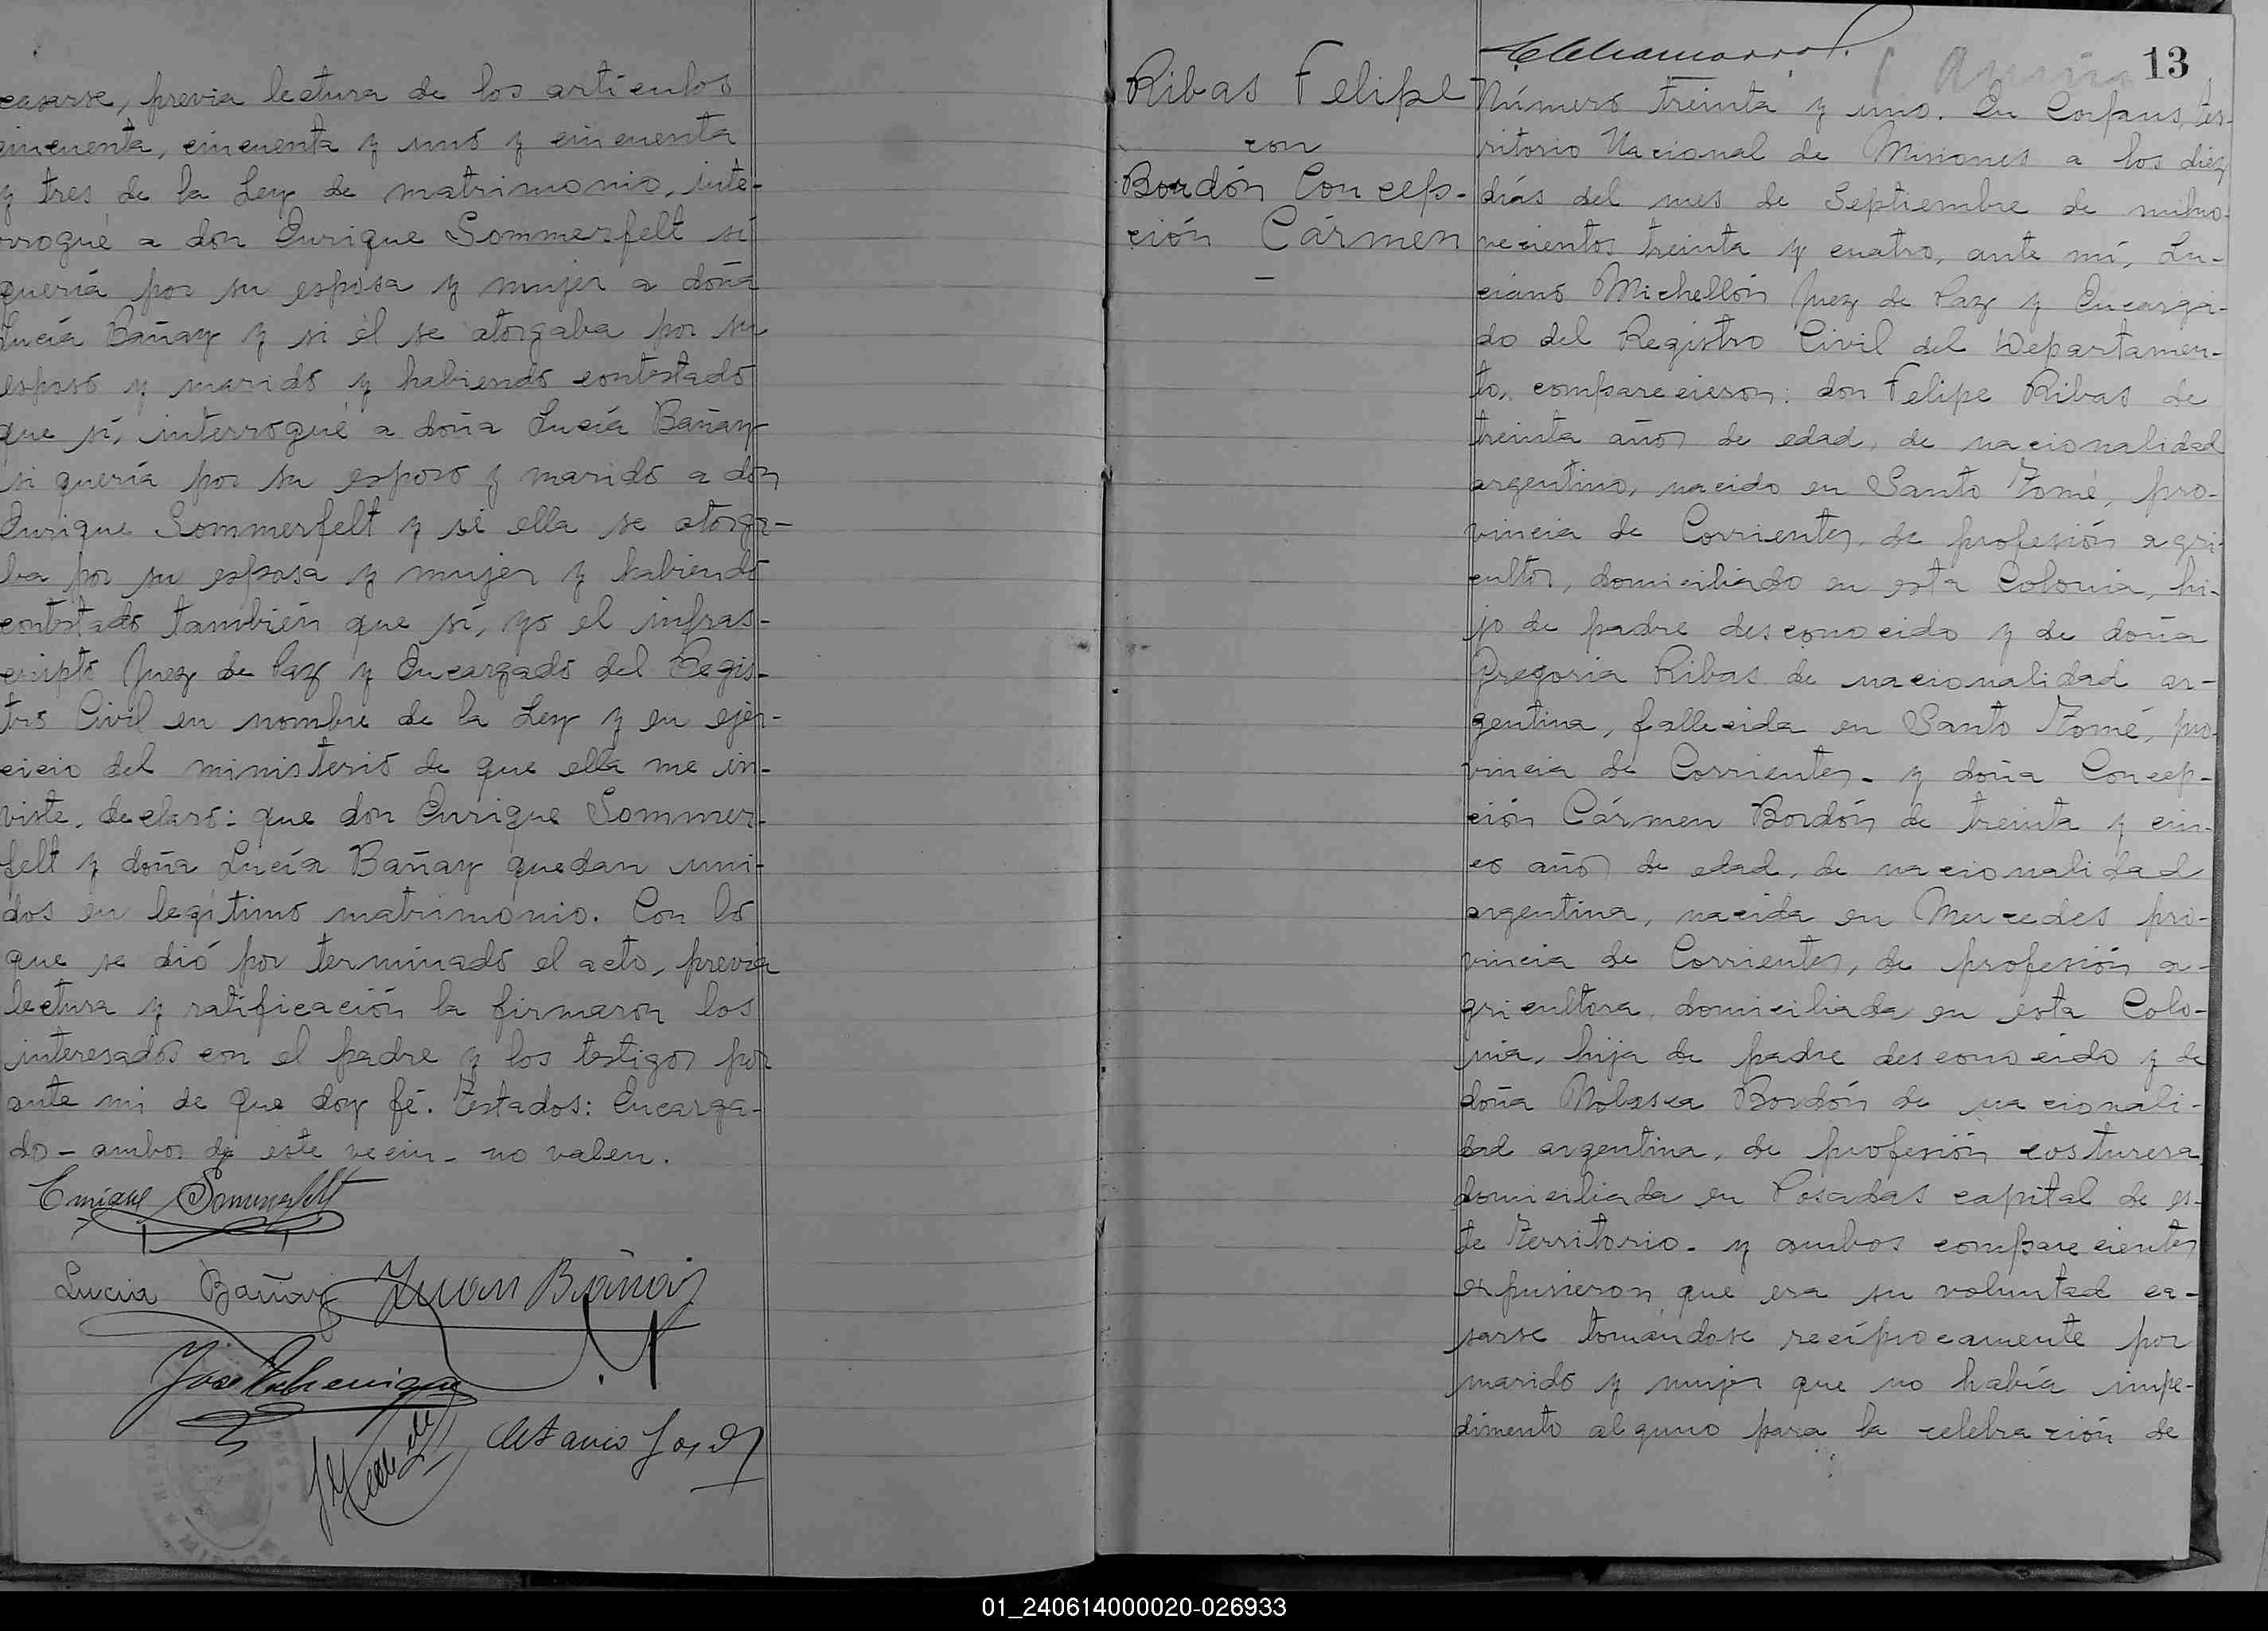 casarse, previa lectura de los artículos
cincuenta, cincuenta y uno y cincuenta
y tres de la Ley de matrimonio, inte-
rrogué a don Enrique Sommerfelt si
quería por su esposa y mujer a doña
Lucía Bañay y si él se otorgaba por su
esposo y marido y habiendo contestado
que sí, interrogué a doña Lucía Bañay
si quería por su esposo y marido a don
Enrique Sommerfelt y si ella se otorga-
ba por su esposa y mujer y habiendo
contestado también que sí, yo el infras-
cripto Juez de Paz y Encargado del Regis-
tro Civil en nombre de la Ley y en ejer-
cicio del ministerio de que ella me in-
viste, declaro: que don Enrique Sommer-
felt y doña Lucía Bañay quedan uni-
dos en legítimo matrimonio. Con lo
que se dió por terminado el acto, previa
lectura y ratificación la firmaron los
interesados con el padre y los testigos por
ante mi de que doy fé. Testados: Encarga-
do - ambos de este vecin - no valen.
Enrique Sommerfelt
Lucia Bañay Juan Bañay
José
13
Ribas Felipe
con
Bordón Concep-
ción Cármen
Número treinta y uno. En Corpus, ter-
ritorio Nacional de Misiones a los diez
días del mes de Septiembre de milno-
vecientos treinta y cuatro, ante mí, Lu-
ciano Michellón Juez de Paz y Encarga-
do del Registro Civil del Departamen-
to, comparecieron: don Felipe Ribas de
treinta años de edad, de nacionalidad
argentino, nacido en Santo Tomé, pro-
vincia de Corrientes, de profesión agri-
cultor, domiciliado en esta Colonia, hi-
jo de padre desconocido y de doña
Gregoria Ribas de nacionalidad ar-
gentina, fallecida en Santo Tomé, pro-
vincia de Corrientes. y doña Concep-
ción Cármen Bordón de treinta y cin-
co años de edad, de nacionalidad
argentina, nacida en Mercedes pro-
vincia de Corrientes, de profesión a-
gricultora, domiciliada en esta Colo-
nia, hija de padre desconocido y de
doña Bordón de nacionali-
dad argentina, de profesión costurera,
domiciliada en Posadas capital de es-
te Territorio. y ambos comparecientes
expusieron que era su voluntad ca-
sarse tomándose recíprocamente por
marido y mujer que no había impe-
dimento alguno para la celebración de
01_240614000020-026933